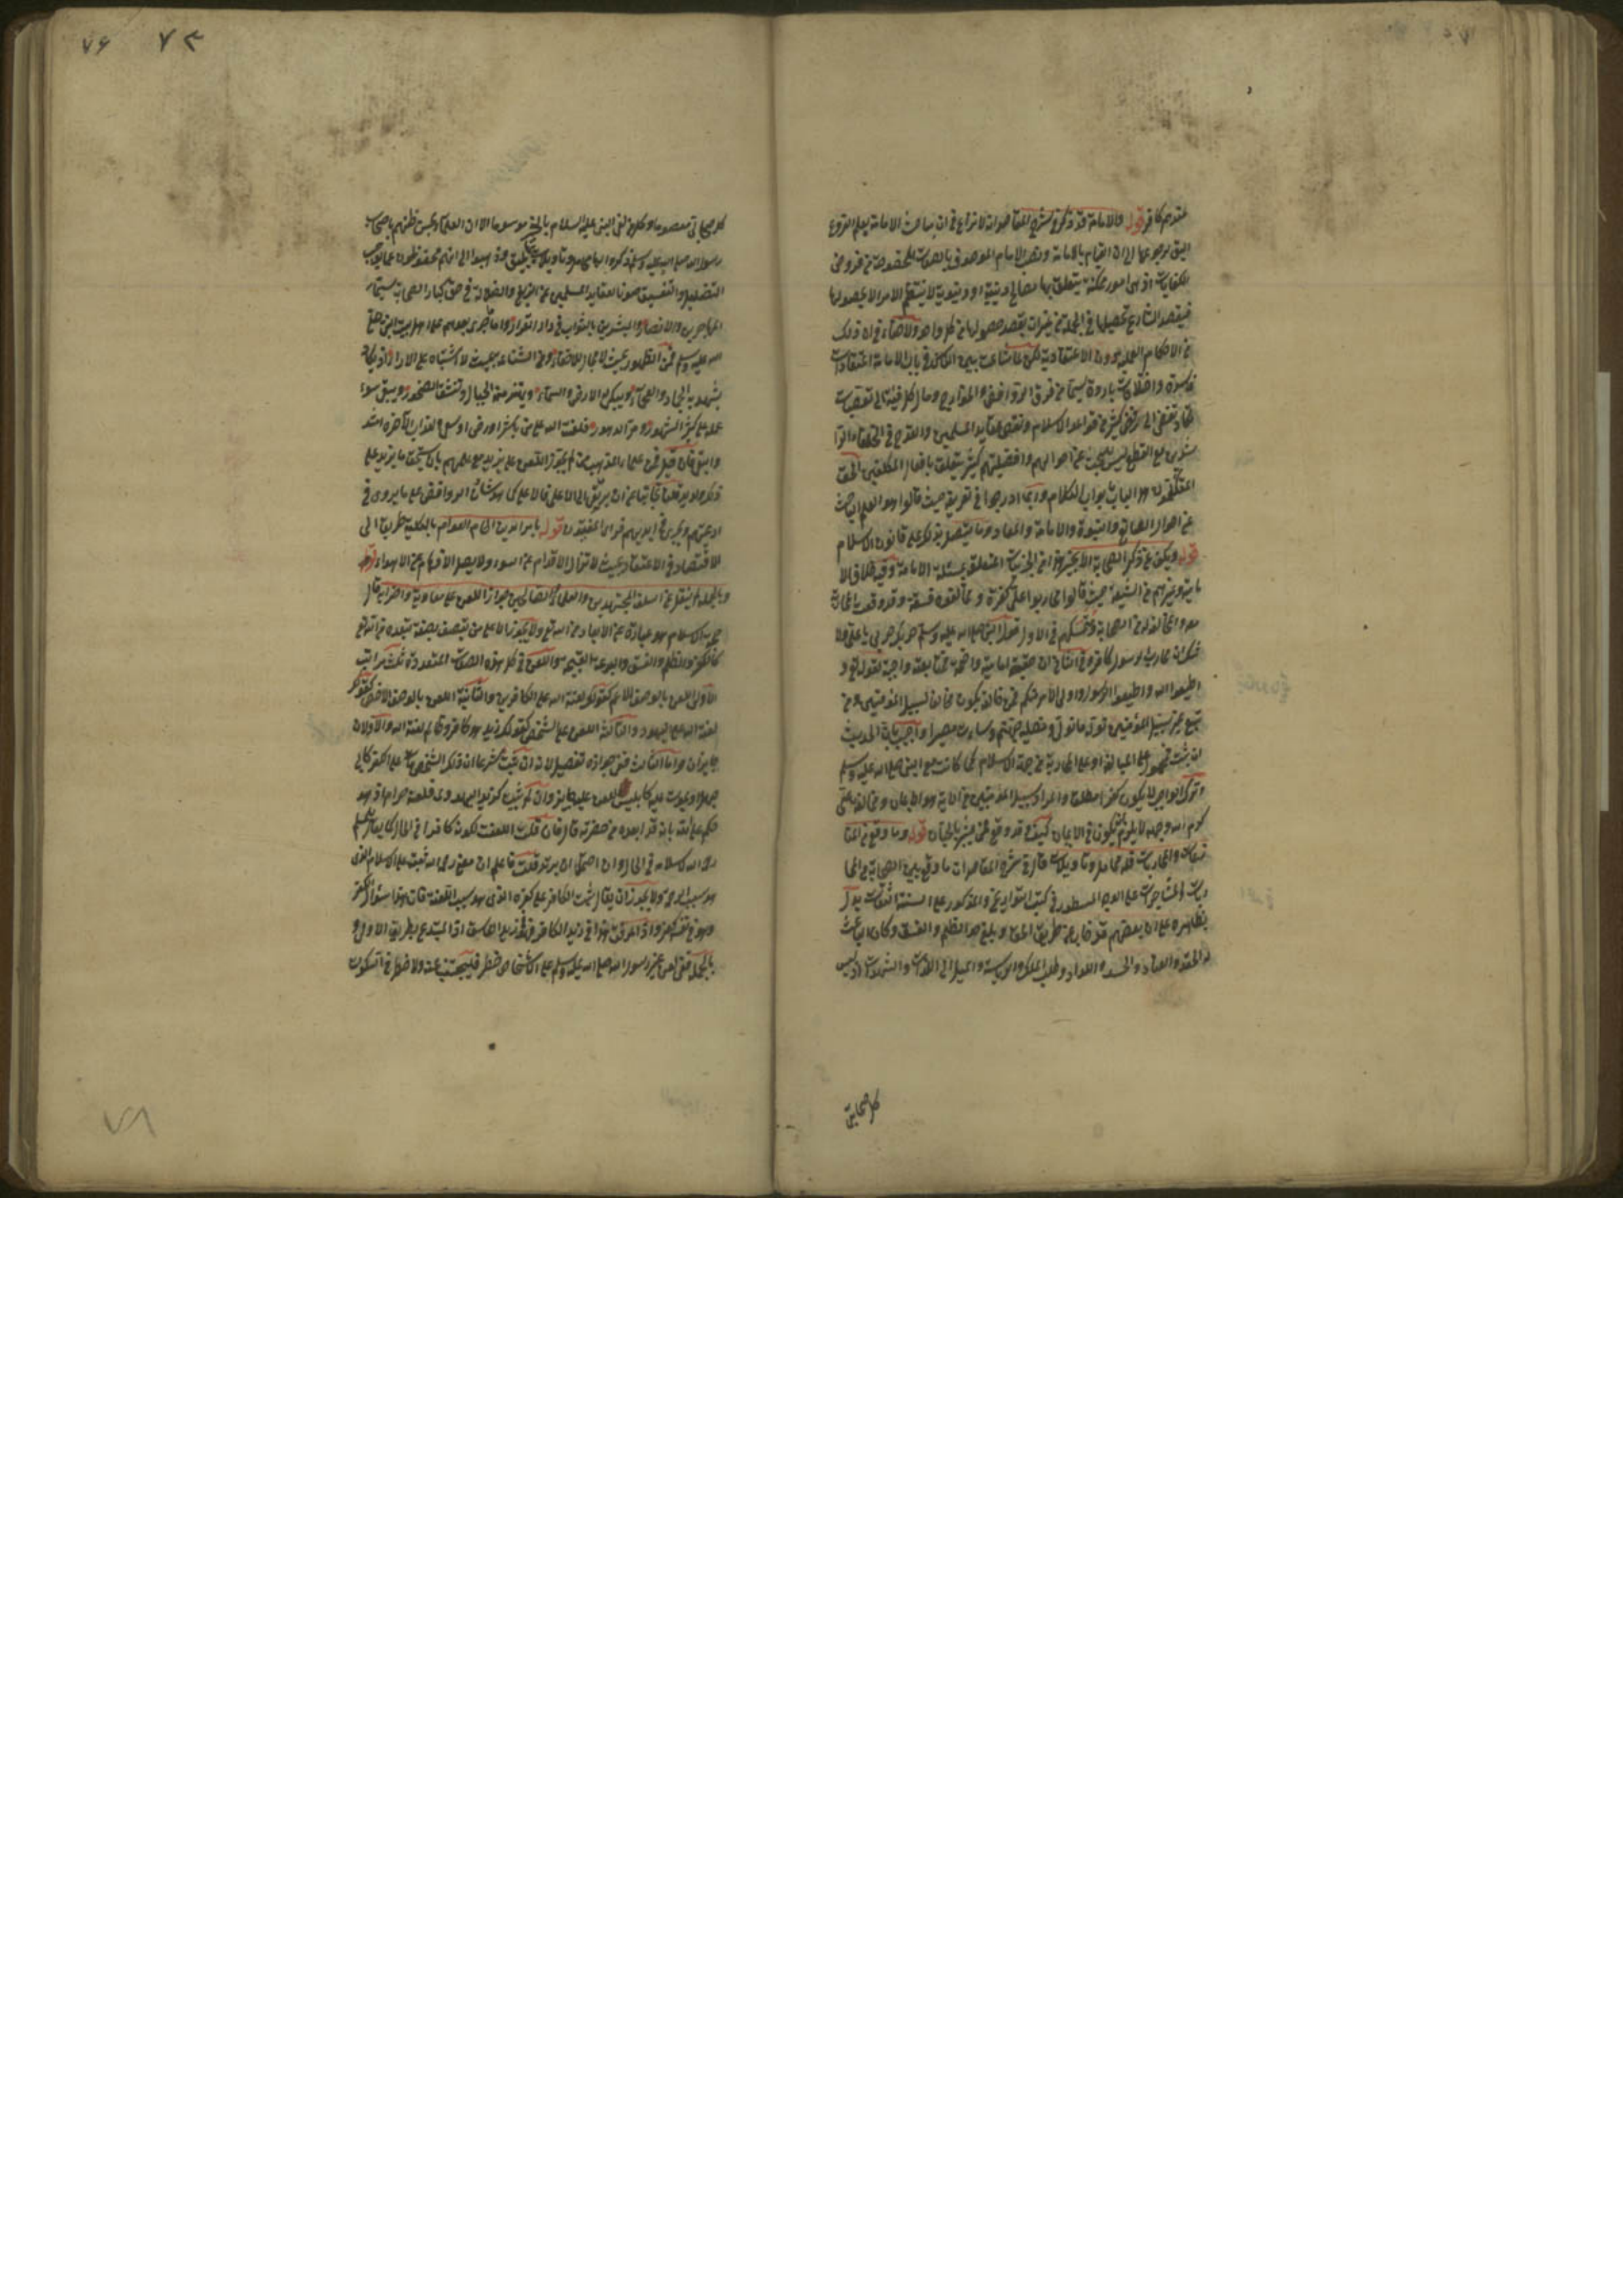 عندهم كافر قوله والامامة قد ذكر في شرح المقاصد انه لا نزاع في ان مباحث الامامة بعلم الفروع
اليق لرجوعها الى ان القيام بالامامة ونصب الامام الموصوف بالصفات المخصوصة من فروض
الكفايات اذ هي امور ممكنة يتعلق بها مصالح دينية او دنيوية لا ينتظم الامر الا بحصولها
فيقصد الشارع تحصيلها في الجملة من غير ان يقصد حصولها من كل واحد ولا خفاء في ان ذلك
من الاحكام العملية دون الاعتقادية لكن لما شاعت بين الناس في باب الامامة اعتقادات
فاسدة واختلافات باردة سيما من فرق الروافض والخوارج ومال كل فئة الى تعصبات
تكاد تفضي الى رفض كثير من قواعد الاسلام ونقض عقايد المسلمين والقدح في الخلفاء الرا
شدين مع القطع بانه ليس للبحث عن احوالهم وافضليتهم كثير تعلق بافعال المكلفين الحق
المتكلمون هذا الباب بابواب الكلام وربما ادرجوا في تعريفه حيث قالوا هو العلم الباحث
عن احوال الصانع والنبوة والامامة والمعاد وما يتصل بذلك على قانون الاسلام
قوله ويكف عن ذكر الصحابة الا بخير هذا من الجزئيات المتعلقة بمسئلة الامامة وفيه خلاف الا
مامية وغيرهم من الشيعة حيث قالوا محاربوا علي كفرة ومخالفوه فسقة وقد وقعت المحاربة
معه والمخالفة له من الصحابة وتمسكهم في الاول قول النبي صلى الله عليه وسلم حربك حربي يا علي ولا
شك ان محارب رسول كافر وفي الثاني ان حقيقة امامته واضحة فمتابعته واجبة لقوله تع و
اطيعوا الله واطيعوا الرسول واولي الامر منكم فمن خالفه يكون مخالفا لسبيل المؤمنين ومن
يتبع غير سبيل المؤمنين نوله ما تولى ونصله جهنم وساءت مصيرا واجيب بان الحديث
ان ثبت فمحمول على المبالغة او على المحاربة من جهة الاسلام كما كانت مع النبي صلى الله عليه وسلم
وترك الواجب لا يكون كفرا مطلقا والمراد بسبيل المؤمنين في الاية هو الايمان ومخالفة علي
كرم الله وجهه لا يلزم ان يكون في الايمان كيف وقد وقع ممن بشر بالجنان قوله وما وقع من المنا
زعات والمحاربات فله محامل وتاويلات قال في شرح المقاصد ان ما وقع بين الصحابة من المحا
ربات والمشاجرات على الوجه المسطور في كتب التواريخ والمذكور على السنة الثقات يدل
بظاهره على ان بعضهم قد حاد عن طريق الحق وبلغ حد الظلم والفسق وكان الباعث
له الحقد والعناد والحسد واللداد وطلب الملك والرياسة والميل الى اللذات والشهوات اذ ليس
كل صحابي
٧٦ ٧٣
كل صحابي معصوما ولا كل من لقي النبي عليه السلام بالخير موسوما الا ان العلماء لحسن ظنهم باصحاب
رسول الله صلى الله عليه وسلم ذكروا لها محامل وتاويلات بها يليق وذهبوا الى انهم محفوظون عما يوجب
التضليل والتفسيق صونا لعقايد المسلمين عن الزيغ والضلالة في حق كبار الصحابة سيما
المهاجرين والانصار والمبشرين بالثواب في دار القرار واما ما جرى بعدهم على اهل بيت النبي صلى
الله عليه وسلم فمن الظهور بحيث لا مجال للاخفاء ومن الشناعة بحيث لا اشتباه على الاراء اذ يكاد
يشهد به الجماد والعجماء ويبكي له الارض والسماء وينهد منه الجبال وتنشق الصخور ويبقى سوء
عمله على كر الشهور ومر الدهور فلعنة الله على من باشر او رضي او سعى ولعذاب الآخرة اشد
وابقى فان قيل فمن علماء المذهب من لم يجوز اللعن على يزيد مع علمهم بانه يستحق ما يزيد على
ذلك ويزيد قلنا تحاميا عن ان يرتقى الى الاعلى فالاعلى كما هو شان الروافض على ما يروى في
ادعيتهم ويجري في انديتهم فراى المعتنون بامر الدين الجام العوام بالكلية طريقا الى
الاقتصاد في الاعتقاد بحيث لا تزل الاقدام عن السواء ولا يضل الافهام عن الاهواء قوله
وبالجملة لم ينقل عن السلف المجتهدين والعلماء الصالحين جواز اللعن على معاوية واحزابه قال
حجة الاسلام هو عبارة عن الابعاد من الله تع ولا يجوز الا على من يتصف بصفة تبعده من الله تع
كالكفر والظلم والفسق والبدعة القبيحة واللعن في كل هذه الصفات المتعددة ثلث مراتب
الاولى اللعن بالوصف الاعم كقولك لعنة الله على الكافرين والثانية اللعن بالوصف الاخص كقولك
لعنة الله على اليهود والثالثة اللعن على الشخص كقولك زيد هو كافر وظالم لعنه الله والاولان
جايزان واما الثالث ففي جوازه تفصيل لانه ان ثبت شرعا ان ذلك الشخص مات على الكفر كابي
جهل او يموت عليه كابليس فاللعن عليه جايز وان لم يثبت كزيد اليهودي فلعنه حرام اذ هو
حكم على الله بانه قد ابعده من حضرته قال فان قلت اللعنة لكونه كافرا في الحال كما يقال للمسلم
رحمه الله لاسلامه في الحال وان احتمل ان يرتد قلت فاعلم ان معنى رحمه الله ثبته على الاسلام الذي
هو سبب الرحمة ولا يجوز ان يقال ثبت الكافر على كفره الذي هو سبب اللعنة فان هذا سؤال الكفر
وهو في نفسه كفر واذا عرفت هذا في زيد الكافر ففي زيد الفاسق او المبتدع بطريق الاولى و
بالجملة ففي لعن غير رسول الله صلى الله عليه وسلم على الاشخاص خطر فليجتنب عنه ولا خطر في السكوت